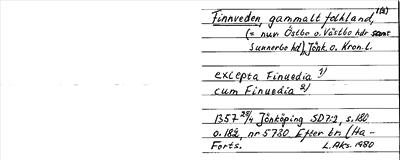 1(2)
Finnveden, gammalt folkland,
(= nuv Östbo o. Västbo hdr samt
Sunnerbo hd), Jönk. o. Kron. l.
excepta Finuedia 1)
cum Finuedia 2)
1357 25/4 Jönköping SD7:2, s. 180
o. 182, nr 5730 Efter br. (Ha-
Forts. L. Aks. 1980